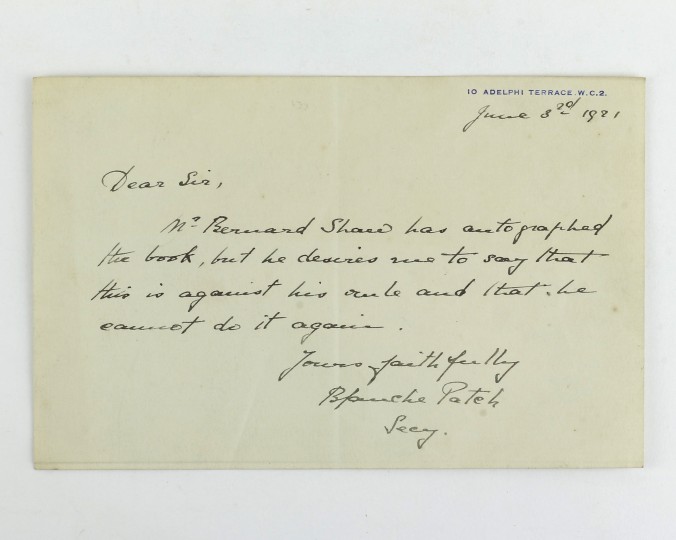 10 ADELPHI TERRACE. W.C.2.
June 3rd 1921
Dear Sir,
Mr Bernard Shaw has autographed
the book, but he desires me to say that
this is against his rule and that he
cannot do it again.
Yours faithfully
Blanche Patch
Secy.